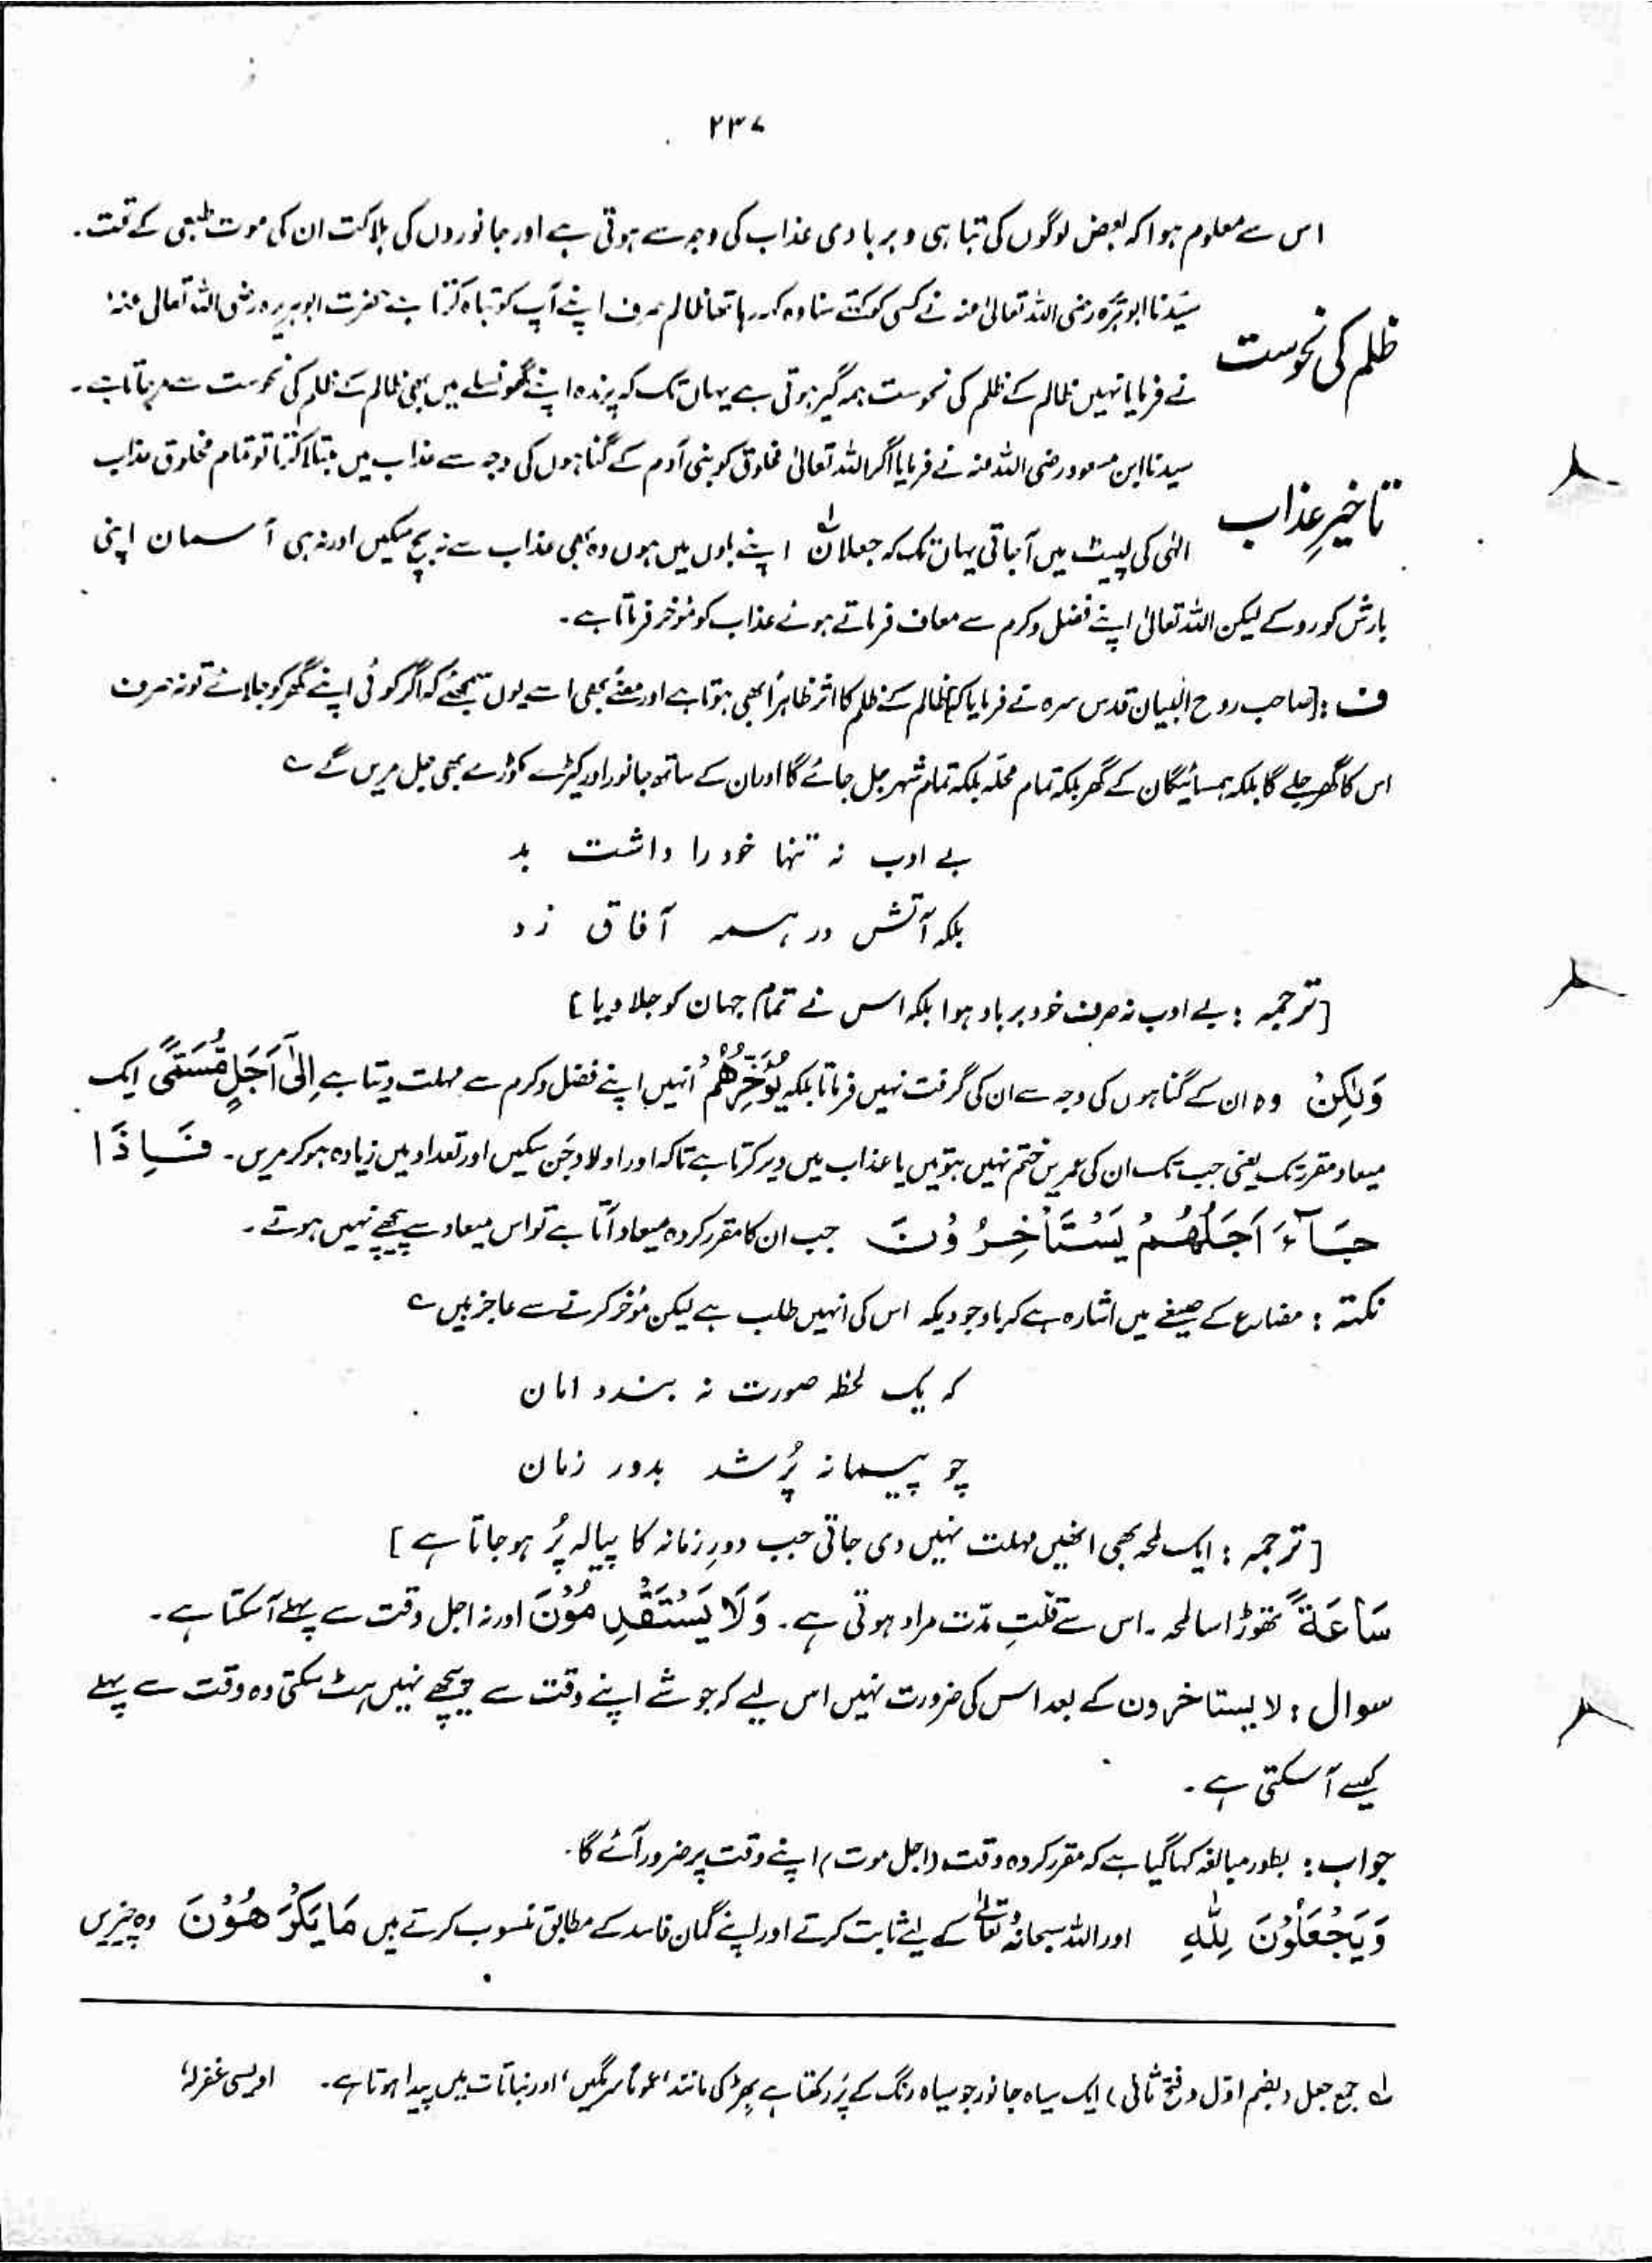 ۲۳۷
اس سے معلوم ہوا کہ بعض لوگوں کی تباہی و بربادی عذاب کی وجہ سے ہوتی ہے اور جانوروں کی ہلاکت ان کی موت طبعی کے تحت۔
ظلم کی نحوست
سیّدنا ابوہریرہ رضی اللہ تعالیٰ عنہ نے کسی کو کہتے سنا وہ کہہ رہا تھا ظالم صرف اپنے آپ کو تباہ کرتا ہے حضرت ابوہریرہ رضی اللہ تعالیٰ عنہٗ
نے فرمایا نہیں ظالم کے ظلم کی نحوست ہمہ گیر ہوتی ہے یہاں تک کہ پرندہ اپنے گھونسلے میں بھی ظالم کے ظلم کی نحوست سے مرجاتا ہے۔
تاخیرِ عذاب
سیدنا ابن مسعود رضی اللہ عنہ نے فرمایا اگر اللہ تعالیٰ مخلوق کو بنی آدم کے گناہوں کی وجہ سے عذاب میں مبتلا کرتا تو تمام مخلوق عذاب
الٰہی کی لپیٹ میں آجاتی یہاں تک کہ جعلان لہ اپنے بلوں میں ہوں وہ بھی عذاب سے نہ بچ سکیں اور نہ ہی آسمان اپنی
بارش کو روکے لیکن اللہ تعالیٰ اپنے فضل وکرم سے معاف فرماتے ہوئے عذاب کو مؤخر فرماتا ہے۔
ف : [صاحب روح البیان قدس سرہ نے فرمایا کہ] ظالم کے ظلم کا اثر ظاہراً بھی ہوتا ہے اور معنےً بھی اسے یوں سمجھئے کہ اگر کوئی اپنے گھر کو جلائے تو نہ صرف
اس کا گھر جلے گا بلکہ ہمسائیگان کے گھر بلکہ تمام محلّہ بلکہ تمام شہر جل جائے گا اور ان کے ساتھ جانور اور کیڑے مکوڑے بھی جل مریں گے ؎
بے ادب نہ تنہا خود را داشت بد
بلکہ آتش در ہمہ آفاق زد
[ترجمہ : بے ادب نہ صرف خود برباد ہوا بلکہ اس نے تمام جہان کو جلا دیا]
وَلٰکِنْ وہ ان کے گناہوں کی وجہ سے ان کی گرفت نہیں فرماتا بلکہ یُؤَخِّرُھُمْ انہیں اپنے فضل وکرم سے مہلت دیتا ہے اِلٰٓی اَجَلٍ مُّسَمًّی ایک
میعاد مقرر تک یعنی جب تک ان کی عمریں ختم نہیں ہوتیں یا عذاب میں دیر کرتا ہے تاکہ اور اولاد جَن سکیں اور تعداد میں زیادہ ہوکر مریں۔ فَاِذَا
جَآءَ اَجَلُھُمْ یَسْتَاْخِرُوْنَ جب ان کا مقرر کردہ میعاد آتا ہے تو اس میعاد سے پیچھے نہیں ہوتے۔
نکتہ : مضارع کے صیغے میں اشارہ ہے کہ باوجودیکہ اس کی انہیں طلب ہے لیکن مؤخر کرنے سے عاجز ہیں ؎
کہ یک لحظہ صورت نہ بندد امان
چو پیمانہ پُر شد بدور زمان
[ترجمہ : ایک لمحہ بھی انھیں مہلت نہیں دی جاتی جب دورِ زمانہ کا پیالہ پُر ہوجاتا ہے]
سَاعَۃً تھوڑا سا لمحہ۔ اس سے قلّتِ مدّت مراد ہوتی ہے۔ وَلَا یَسْتَقْدِمُوْنَ اور نہ اجل وقت سے پہلے آسکتا ہے۔
سوال : لا یستاخرون کے بعد اس کی ضرورت نہیں اس لیے کہ جو شے اپنے وقت سے پیچھے نہیں ہٹ سکتی وہ وقت سے پہلے
کیسے آسکتی ہے۔
جواب : بطور مبالغہ کہا گیا ہے کہ مقرر کردہ وقت (اجل موت) اپنے وقت پر ضرور آئے گا۔
وَیَجْعَلُوْنَ لِلّٰہِ اور اللہ سبحانہٗ وتعالیٰ کے لیے ثابت کرتے اور اپنے گمان فاسد کے مطابق منسوب کرتے ہیں مَا یَکْرَھُوْنَ وہ چیزیں
لہ جمع جعل (بضم اوّل و فتح ثانی) ایک سیاہ جانور جو سیاہ رنگ کے پَر رکھتا ہے بھڑ کی مانند، عموماً اور نباتات میں پیدا ہوتا ہے۔ اویسی غفرلہٗ